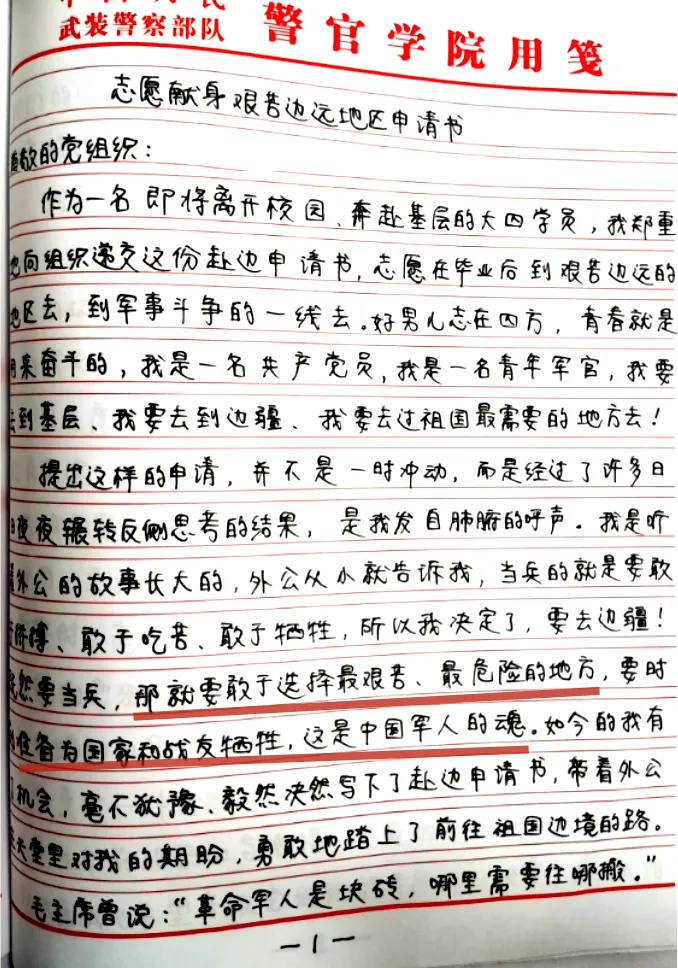 武装警察部队 警官学院用笺
志愿献身艰苦边远地区申请书
敬的党组织：
作为一名即将离开校园、奔赴基层的大四学员，我郑重
地向组织递交这份赴边申请书，志愿在毕业后到艰苦边远的
地区去，到军事斗争的一线去。好男儿志在四方，青春就是
用来奋斗的，我是一名共产党员，我是一名青年军官，我要
去到基层、我要去到边疆、我要去过祖国最需要的地方去！
提出这样的申请，并不是一时冲动，而是经过了许多日
日夜夜辗转反侧思考的结果，是我发自肺腑的呼声。我是听
着外公的故事长大的，外公从小就告诉我，当兵的就是要敢
于拼搏、敢于吃苦、敢于牺牲，所以我决定了，要去边疆！
既然要当兵，那就要敢于选择最艰苦、最危险的地方，要时
刻准备为国家和战友牺牲，这是中国军人的魂。如今的我有
了机会，毫不犹豫、毅然决然写下了赴边申请书，带着外公
在天堂里对我的期盼，勇敢地踏上了前往祖国边境的路。
毛主席曾说：“革命军人是块砖，哪里需要往哪搬。”
—1—